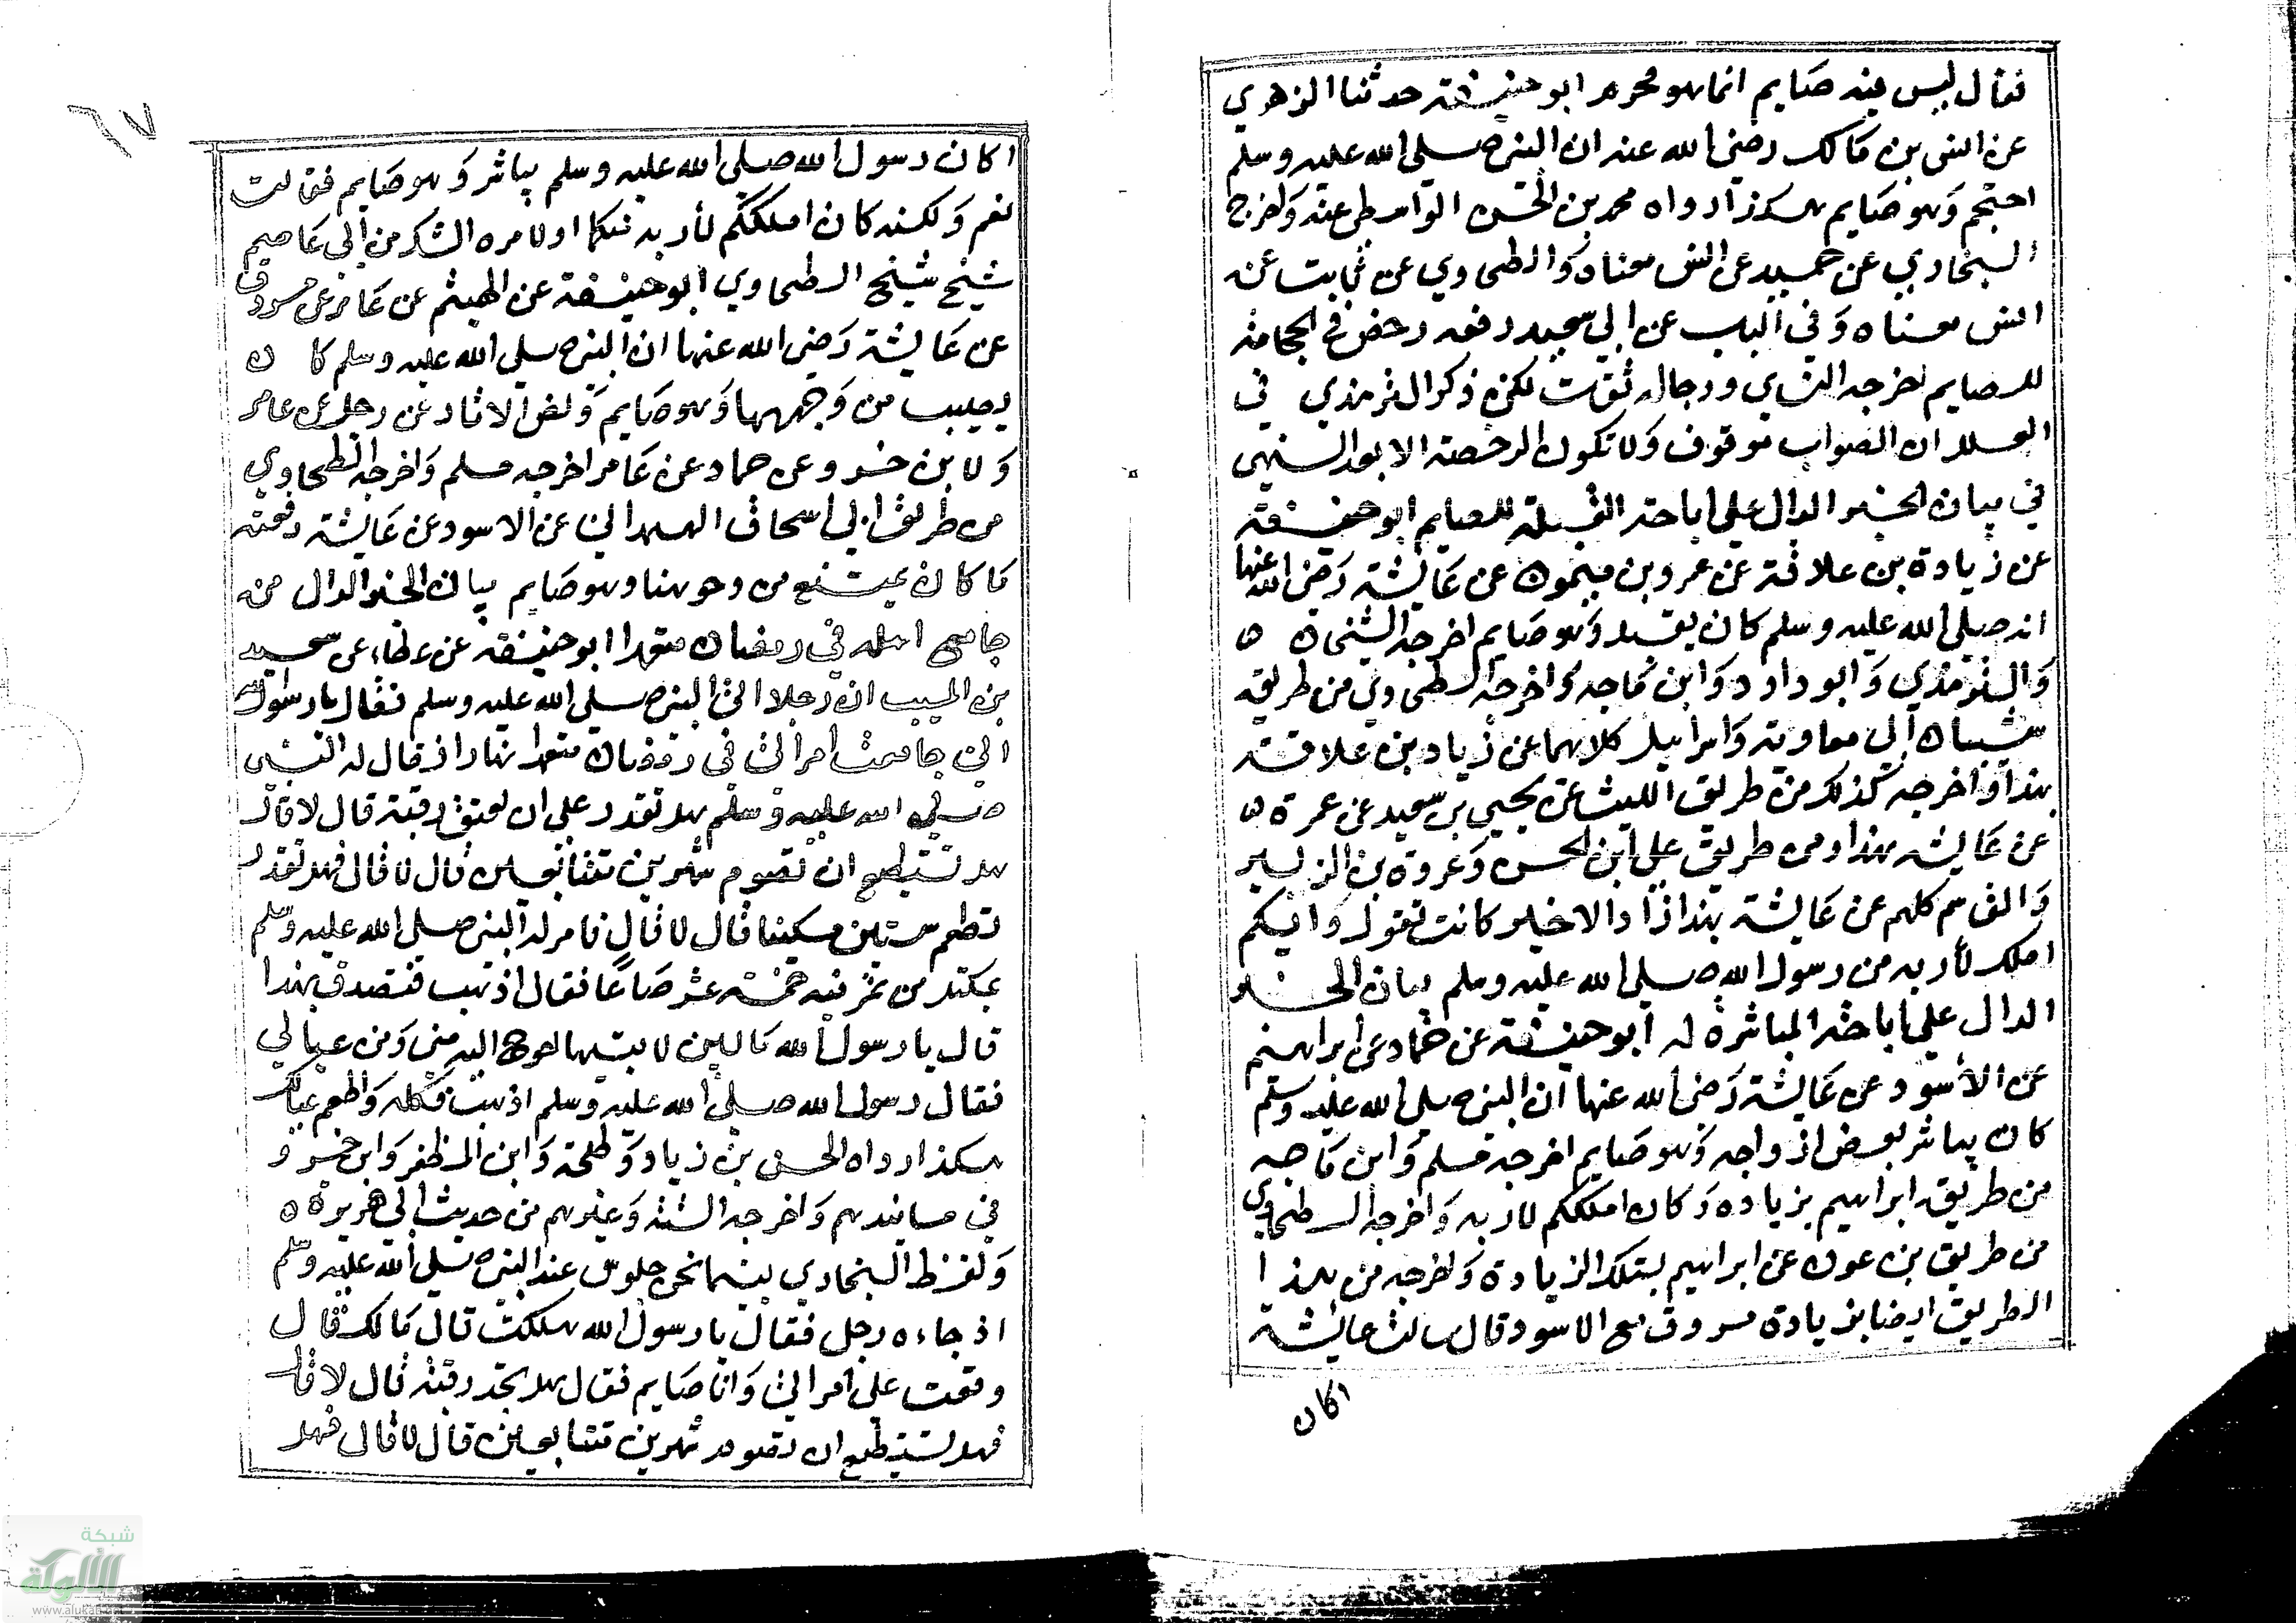 فقال ليس فيه صايم انما هو محرم ابو حنيفة حدثنا الزهري
عن انس بن مالك رضي الله عنه ان النبي صلى الله عليه وسلم
احتجم وهو صايم هكذا رواه محمد بن الحسن الواسطي عنه واخرج
البخاري عن حميد عن انس معناه والطحاوي عن ثابت عن
انس معناه وفي الباب عن ابي سعيد رفعه رخص في الحجامة
للصايم اخرجه النساي ورجاله ثقات لكن ذكر الترمذي في
العلل ان الصواب موقوف ولا تكون الرخصة الا بعد النهي
في بيان الخبر الدال على اباحة القبلة للصايم ابو حنيفة
عن زيادة بن علاقة عن عمرو بن ميمون عن عايشة رضي الله عنها
انه صلى الله عليه وسلم كان يقبل وهو صايم اخرجه الشيخان
والترمذي وابو داود وابن ماجه واخرجه الطحاوي من طريق
شيبان ابي معاوية واسرابيل كلاهما عن زياد بن علاقة
بهذا واخرجه كذلك من طريق الليث عن يحيى بن سعيد عن عمرة
عن عايشة بهذا ومن طريق علي ابن الحسن وعروة بن الزبير
والقاسم كلهم عن عايشة بهذا زاد الاخير كانت تقول وايكم
املك لأربه من رسول الله صلى الله عليه وسلم بيان الخبر
الدال على اباحة المباشرة له ابو حنيفة عن حماد عن ابراهيم
عن الأسود عن عايشة رضي الله عنها ان النبي صلى الله عليه وسلم
كان يباشر بعض ازواجه وهو صايم اخرجه مسلم وابن ماجه
من طريق ابراهيم بزيادة وكان املككم لاربه واخرجه الطحاوي
من طريق بن عون عن ابراهيم بتلك الزيادة واخرجه من هذا
الطريق ايضا بزيادة مسروق مع الاسود قال سالت عايشة
اكان
٦٧
اكان رسول الله صلى الله عليه وسلم يباشر وهو صايم فقالت
نعم ولكنه كان املككم لأربه منكما او لامره الشك من ابي عاصم
شيخ شيخ الطحاوي ابو حنيفة عن الهيثم عن عامر عن مسروق
عن عايشة رضي الله عنها ان النبي صلى الله عليه وسلم كان
يصيب من وجهها وهو صايم ولفظ الاثار عن رجل عن عامر
ولابن خسرو عن حماد عن عامر اخرجه مسلم واخرجه الطحاوي
من طريق ابي اسحاق الهمداني عن الاسود عن عايشة رفعته
ما كان يمتنع من وجوهنا وهو صايم بيان الخبر الدال من
جامع اهله في رمضان متعمدا ابو حنيفة عن عطاء عن سعيد
بن المسيب ان رجلا اتى النبي صلى الله عليه وسلم فقال يا رسول الله
اني جامعت امراتي في رمضان متعمدا نهارا فقال له النبي
صلى الله عليه وسلم هل تقدر على ان تعتق رقبة قال لا قال
هل تستطيع ان تصوم شهرين متتابعين قال لا قال فهل تقدر
تطعم ستين مسكينا قال لا قال فامر له النبي صلى الله عليه وسلم
بمكتل من تمر فيه خمسة عشر صاعا فقال اذهب فتصدق بهذا
قال يا رسول الله ما بين لابتيها احوج اليه مني ومن عيالي
فقال رسول الله صلى الله عليه وسلم اذهب فكله واطعم عيالك
هكذا رواه الحسن بن زياد وطلحة وابن المظفر وابن خسرو
في مسانيدهم واخرجه الستة وغيرهم من حديث ابي هريرة
ولفظ البخاري بينما نحن جلوس عند النبي صلى الله عليه وسلم
اذ جاءه رجل فقال يا رسول الله هلكت قال مالك قال
وقعت على امراتي وانا صايم فقال هل تجد رقبة قال لا قال
فهل تستطيع ان تصوم شهرين متتابعين قال لا قال فهل
شبكة
الألوكة